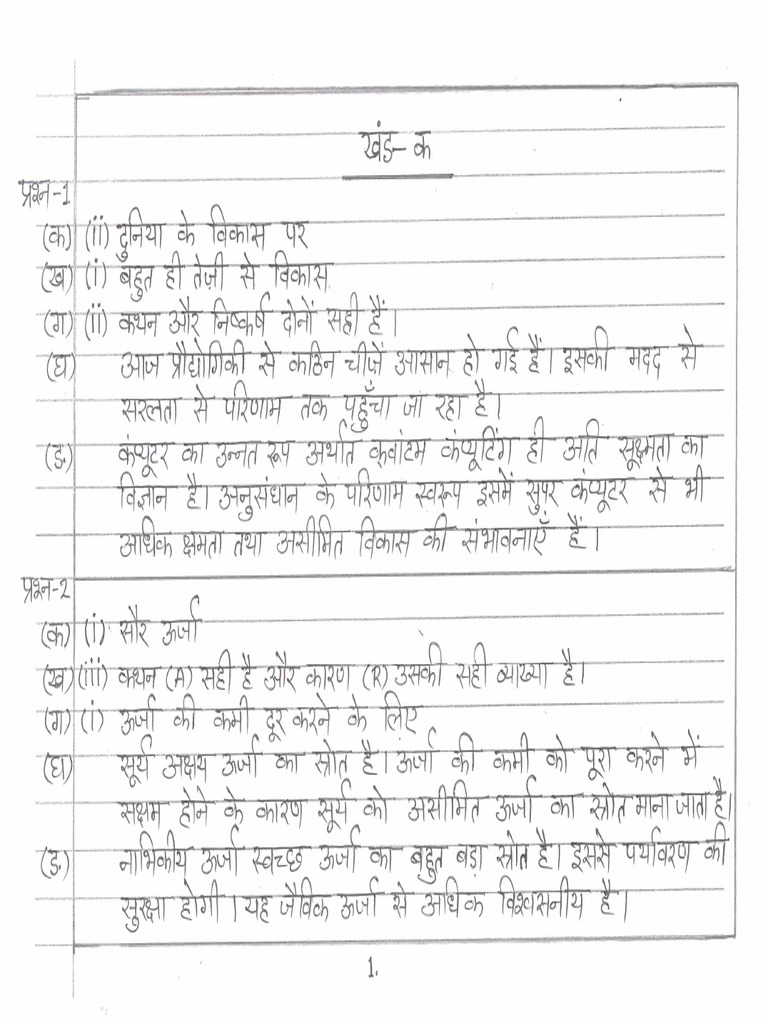 खंड-क
प्रश्न-1
(क) (ii) दुनिया के विकास पर
(ख) (i) बहुत ही तेज़ी से विकास
(ग) (ii) कथन और निष्कर्ष दोनों सही हैं।
(घ) आज प्रौद्योगिकी से कठिन चीज़ें आसान हो गई हैं। इसकी मदद से
सरलता से परिणाम तक पहुँचा जा रहा है।
(ङ) कंप्यूटर का उन्नत रूप अर्थात क्वांटम कंप्यूटिंग ही अति सूक्ष्मता का
विज्ञान है। अनुसंधान के परिणाम स्वरूप इसमें सुपर कंप्यूटर से भी
अधिक क्षमता तथा असीमित विकास की संभावनाएँ हैं।
प्रश्न-2
(क) (i) सौर ऊर्जा
(ख) (iii) कथन (A) सही है और कारण (R) उसकी सही व्याख्या है।
(ग) (i) ऊर्जा की कमी दूर करने के लिए
(घ) सूर्य अक्षय ऊर्जा का स्रोत है। ऊर्जा की कमी को पूरा करने में
सक्षम होने के कारण सूर्य को असीमित ऊर्जा का स्रोत माना जाता है।
(ङ) नाभिकीय ऊर्जा स्वच्छ ऊर्जा का बहुत बड़ा स्रोत है। इससे पर्यावरण की
सुरक्षा होगी। यह जैविक ऊर्जा से अधिक विश्वसनीय है।
1.